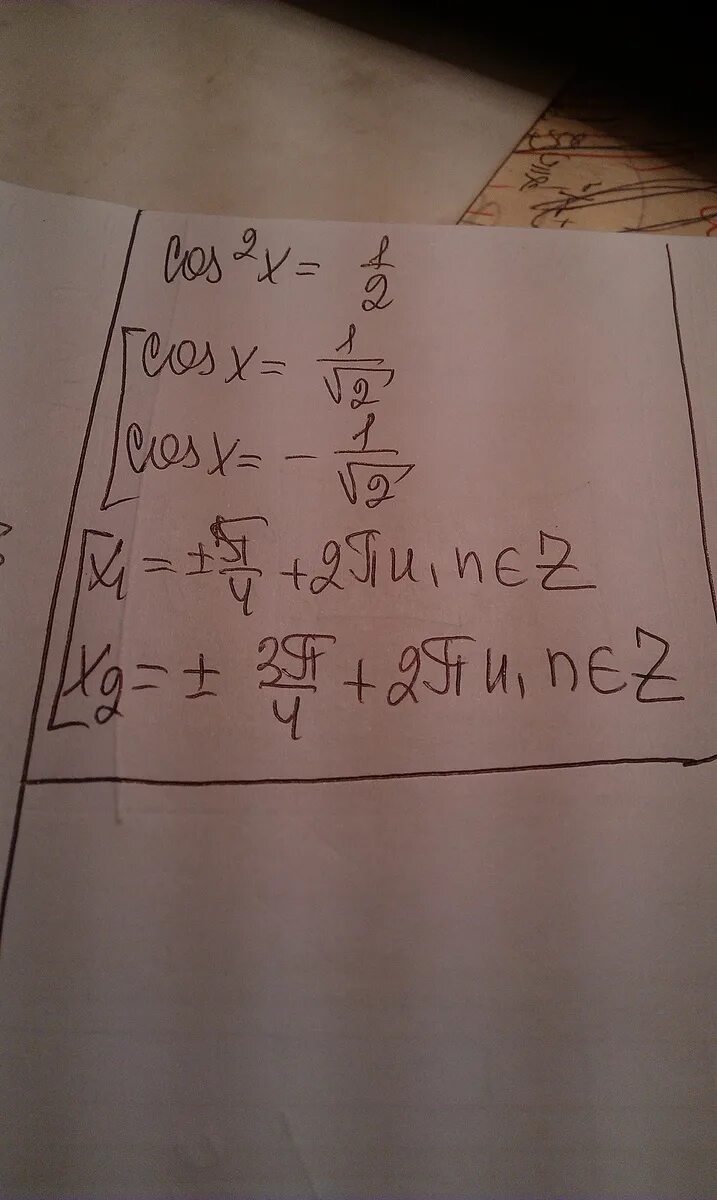 cos²x = 1/2
cos x = 1/√2
cos x = - 1/√2
x₁ = ± π/4 + 2πn, n ∈ Z
x₂ = ± 3π/4 + 2πn, n ∈ Z